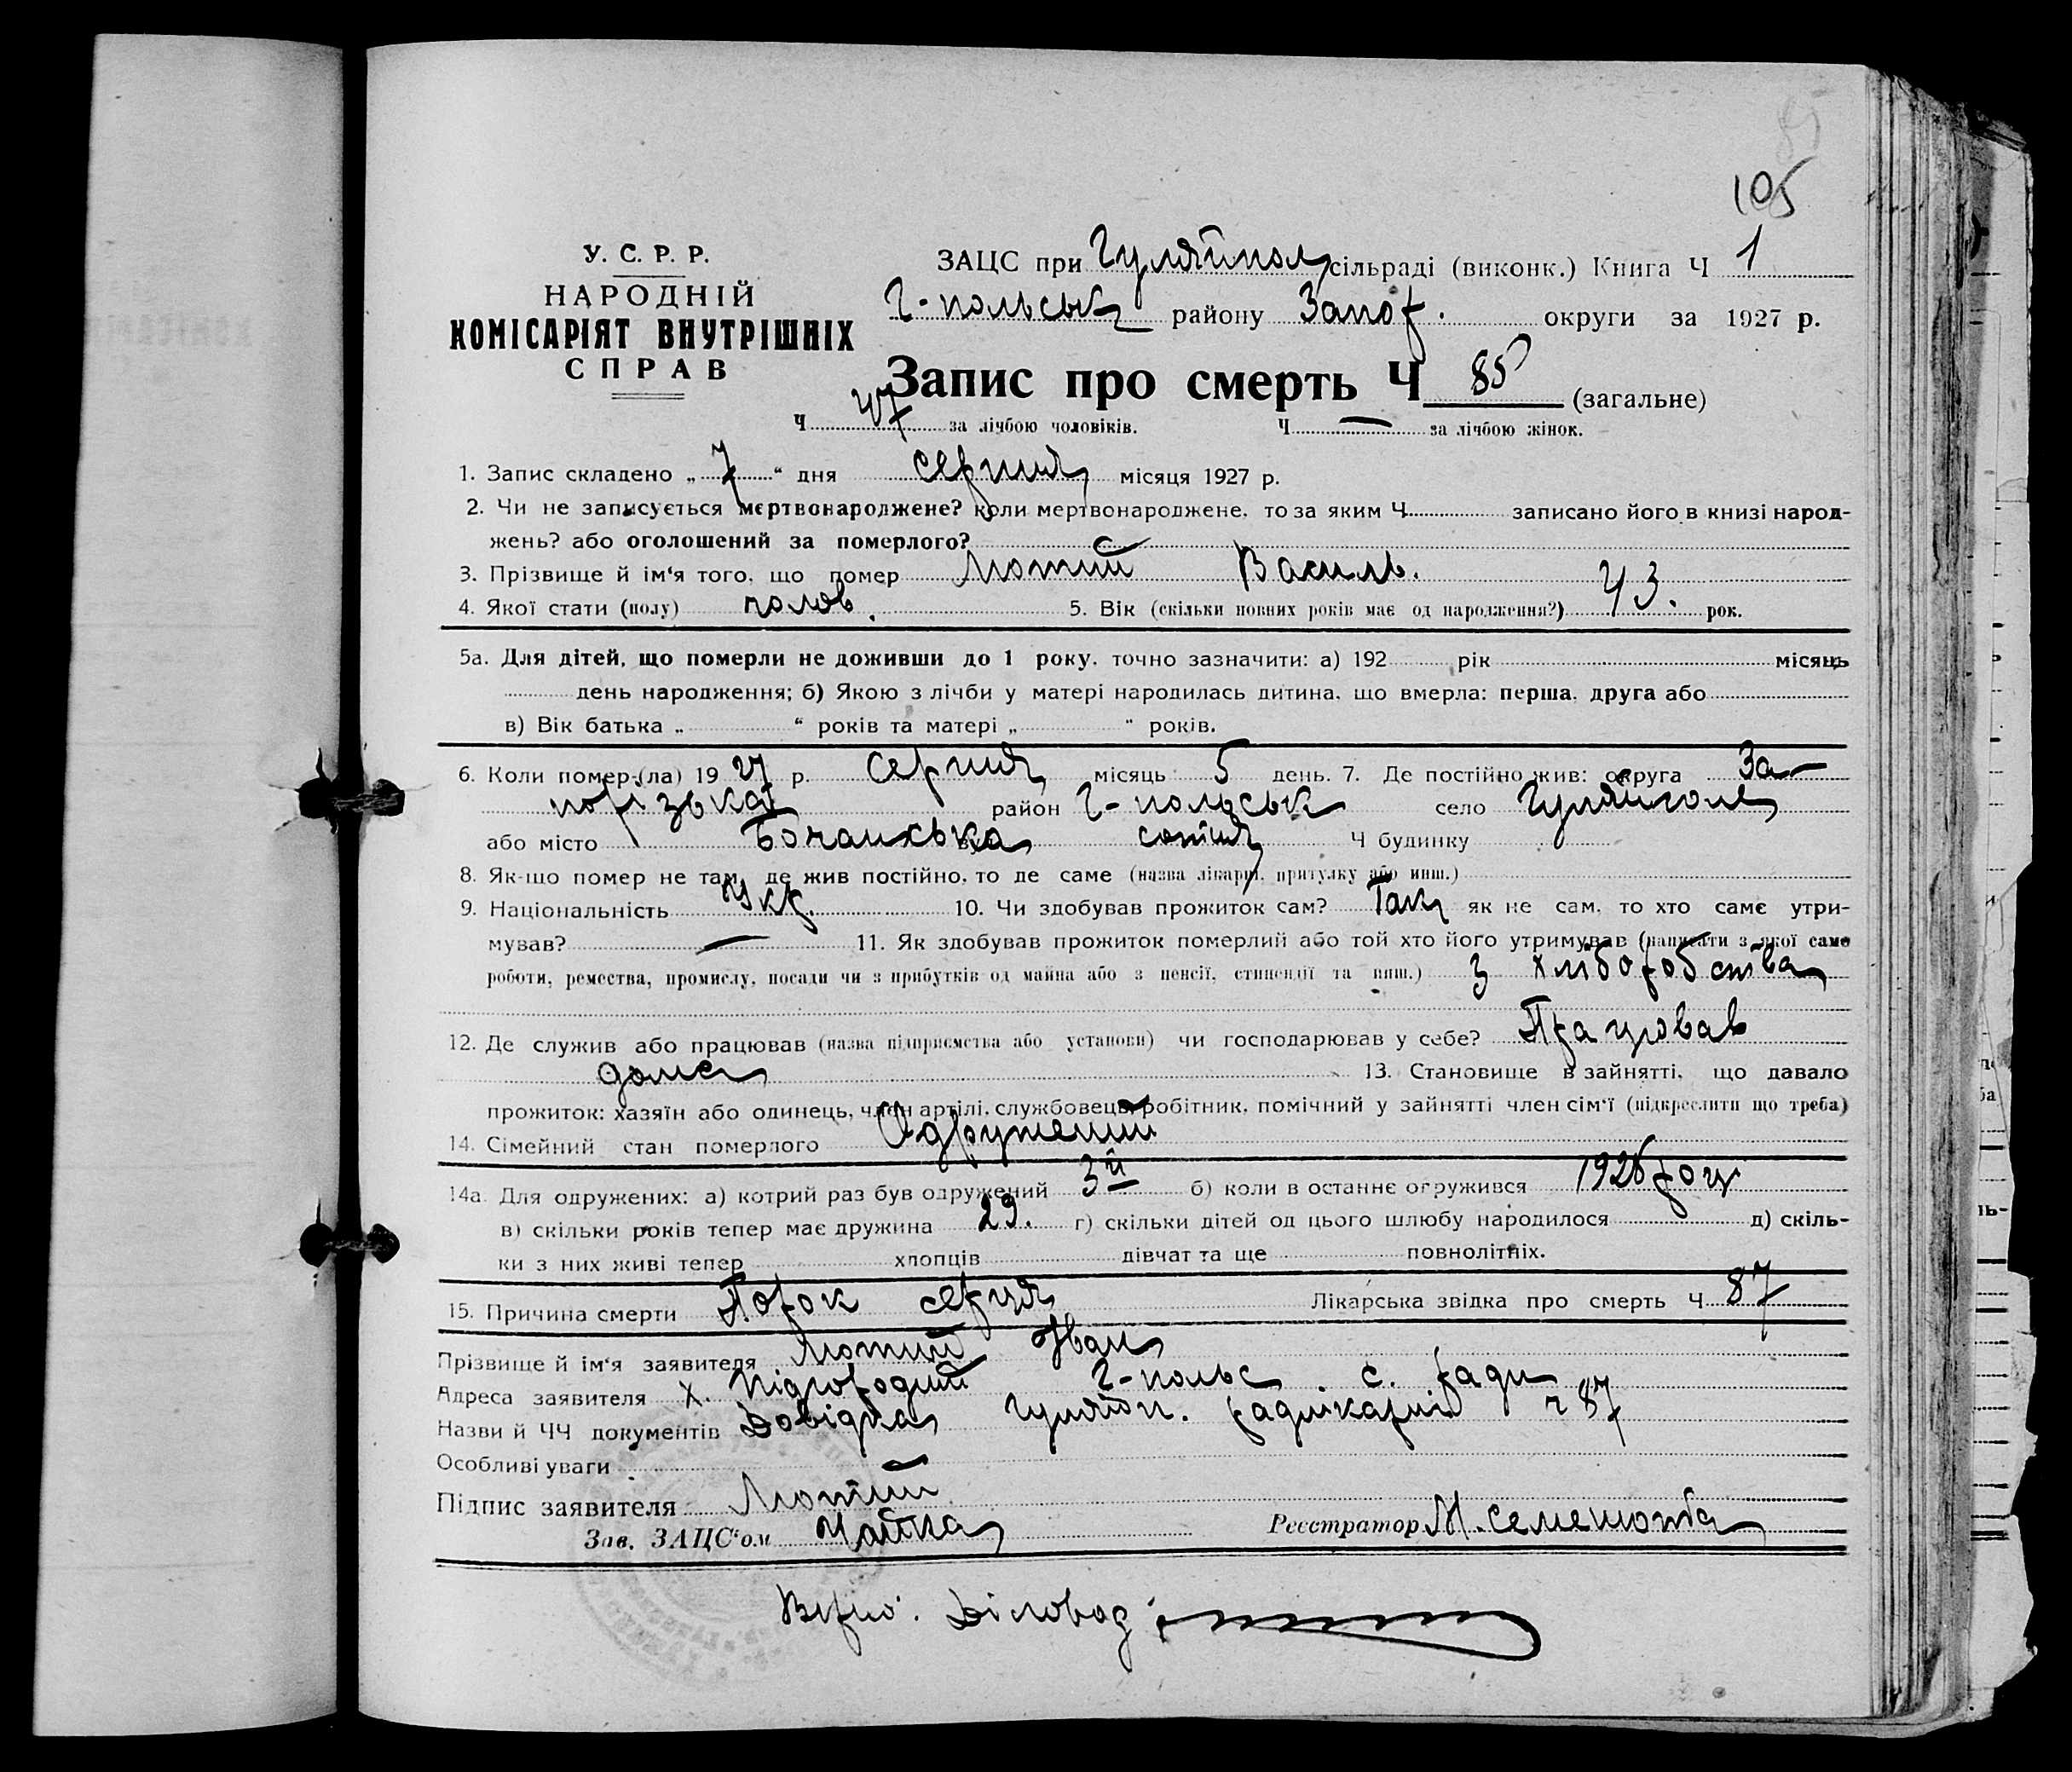 85
105
У. С. Р. Р.
НАРОДНІЙ
КОМІСАРІЯТ ВНУТРІШНІХ
СПРАВ
ЗАЦС при Гуляйпол сільраді (виконк.) Книга Ч 1
Г-польськ району Запор. округи за 1927 р.
Запис про смерть Ч 85 (загальне)
Ч 47 за лічбою чоловіків. Ч — за лічбою жінок.
1. Запис складено „ 7 “ дня серпня місяця 1927 р.
2. Чи не записується мертвонароджене? коли мертвонароджене, то за яким Ч записано його в книзі народ-
жень? або оголошений за померлого?
3. Прізвище й ім‘я того, що помер Лютий Василь.
4. Якої стати (полу) чолов. 5. Вік (скільки повних років має од народження?) 43. рок.
5а. Для дітей, що померли не доживши до 1 року, точно зазначити: а) 192 рік місяць
день народження; б) Якою з лічби у матері народилась дитина, що вмерла: перша, друга або
в) Вік батька „ “ років та матері „ “ років.
6. Коли помер-(ла) 19 27 р. серпня місяць 5 день. 7. Де постійно жив: округа За-
порізька район Г-польськ село Гуляйполе
або місто Бочанська сотня Ч будинку
8. Як-що помер не там, де жив постійно, то де саме (назва лікарні, притулку або инш.)
9. Національність Укр. 10. Чи здобував прожиток сам? Так як не сам, то хто саме утри-
мував? — 11. Як здобував прожиток померлий або той хто його утримував (написати з якої саме
роботи, ремества, промислу, посади чи з прибутків од майна або з пенсії, стипендії та инш.) З хліборобства
12. Де служив або працював (назва підприємства або установи) чи господарював у себе? Працював
дома 13. Становище в зайнятті, що давало
прожиток: хазяїн або одинець, член артілі, службовець, робітник, помічний у зайнятті член сім‘ї (підкреслити що треба)
14. Сімейний стан померлого Одружений
14а. Для одружених: а) котрий раз був одружений 3й б) коли в останнє огружився 1926 році
в) скільки років тепер має дружина 29. г) скільки дітей од цього шлюбу народилося д) скіль-
ки з них живі тепер хлопців дівчат та ще повнолітніх.
15. Причина смерти Порок серця Лікарська звідка про смерть Ч 87
Прізвище й ім‘я заявителя Лютий Іван
Адреса заявителя х. Підгородній Г-польс с. ради
Назви й ЧЧ документів Довідка Гуляйп. радлікарні ч 87
Особливі уваги
Підпис заявителя Лютий
Зав. ЗАЦС‘ом Чайка Реєстратор М. Семенюта
Вірно: Діловод